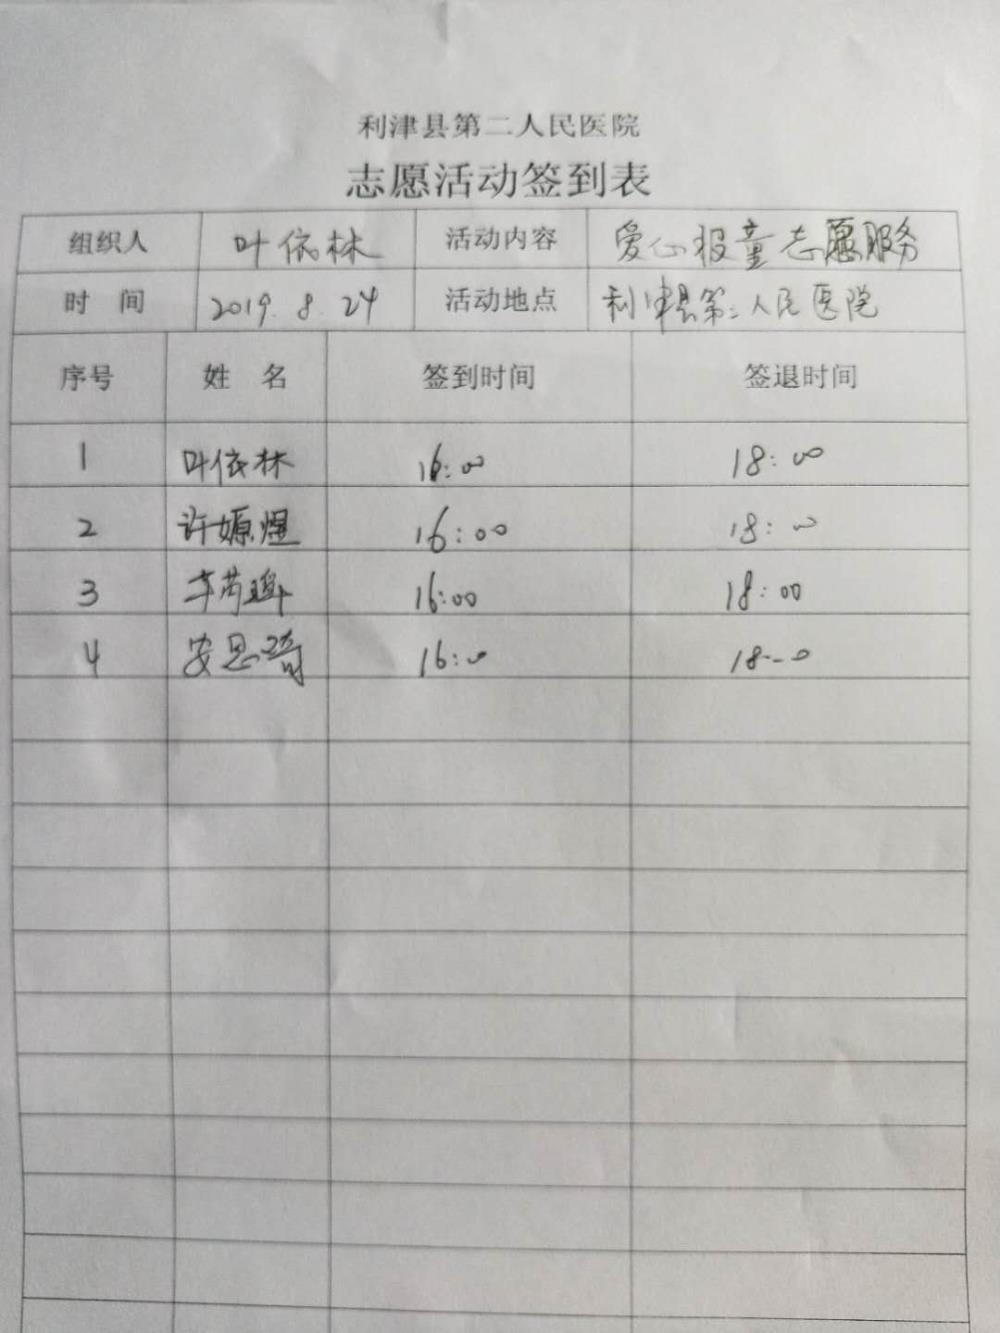 利津县第二人民医院
志愿活动签到表
组织人 叶依林 活动内容 爱心报童志愿服务
时 间 2019.8.24 活动地点 利津县第二人民医院
序号 姓 名 签到时间 签退时间
1 叶依林 16:00 18:00
2 许嫄煜 16:00 18:00
3 16:00 18:00
4 安思琦 16:00 18:00